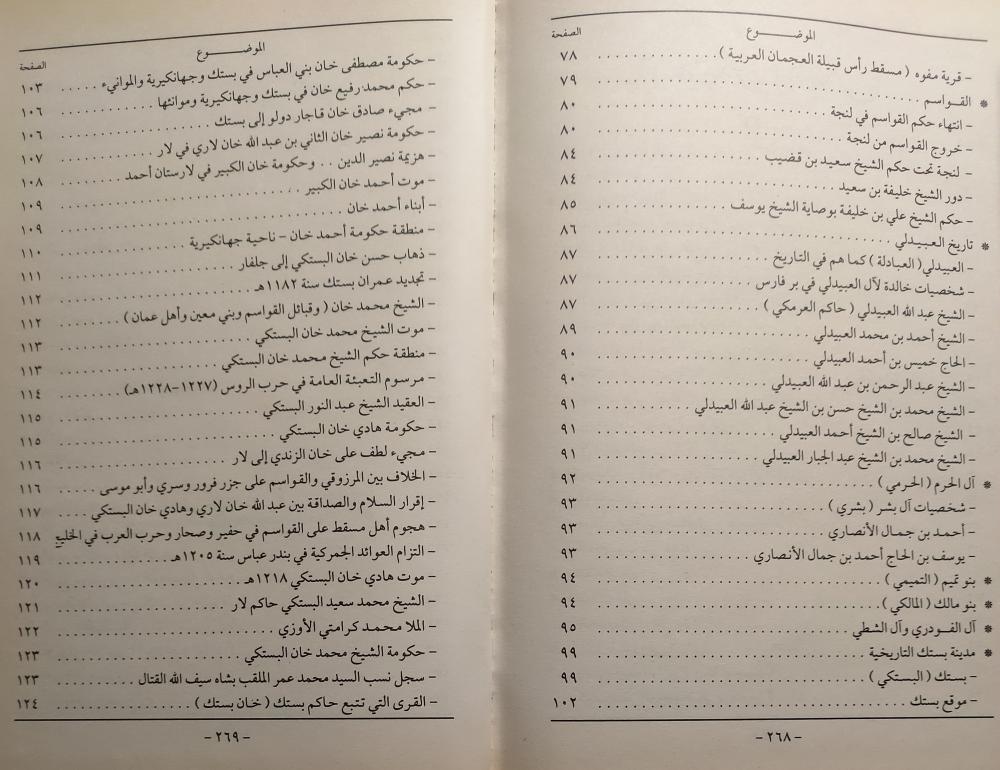 الموضــوع الصفحة
- قرية مفوه ( مسقط رأس قبيلة العجمان العربية ) . . . . . . . . . . ٧٨
* القــواسم . . . . . . . . . . ٧٩
- انتهاء حكم القواسم في لنجة . . . . . . . . . . ٨٠
- خروج القواسم من لنجة . . . . . . . . . . ٨٠
- لنجة تحت حكم الشيخ سعيد بن قضيب . . . . . . . . . . ٨٤
- دور الشيخ خليفة بن سعيد . . . . . . . . . . ٨٤
- حكم الشيخ علي بن خليفة بوصاية الشيخ يوسف . . . . . . . . . . ٨٥
* تاريخ العـبيـدلي . . . . . . . . . . ٨٦
- العبيدلي ( العبادلة ) كما هم في التاريخ . . . . . . . . . . ٨٧
- شخصيات خالدة لآل العبيدلي في بر فارس . . . . . . . . . . ٨٧
- الشيخ عبد الله العبيدلي ( حاكم العرمكي ) . . . . . . . . . . ٨٧
- الشيخ أحمد بن محمد العبيدلي . . . . . . . . . . ٨٩
- الحاج خميس بن أحمد العبيدلي . . . . . . . . . . ٩٠
- الشيخ عبد الرحمن بن عبد الله العبيدلي . . . . . . . . . . ٩٠
- الشيخ محمد بن الشيخ حسن بن الشيخ عبد الله العبيدلي . . . . . . . . . . ٩١
- الشيخ صالح بن الشيخ أحمد العبيدلي . . . . . . . . . . ٩١
- الشيخ محمد بن الشيخ عبد الجبار العبيدلي . . . . . . . . . . ٩١
* آل الحرم ( الحرمي ) . . . . . . . . . . ٩٢
- شخصيات آل بشر ( بشري ) . . . . . . . . . . ٩٣
- أحمـد بن جمـال الأنصاري . . . . . . . . . . ٩٣
- يوسف بن الحاج أحمد بن جمال الأنصاري . . . . . . . . . . ٩٣
* بنو تميم ( التميمي ) . . . . . . . . . . ٩٤
* بنو مالك ( المالكي ) . . . . . . . . . . ٩٤
* آل الفــودري وآل الشطي . . . . . . . . . . ٩٥
* مدينة بستك التاريخية . . . . . . . . . . ٩٩
- بستك ( البستكي ) . . . . . . . . . . ٩٩
- موقع بستك . . . . . . . . . . ١٠٢
- ٢٦٨ -
الموضــوع الصفحة
- حكومة مصطفى خان بني العباس في بستك وجهانكيرية والموانيء . . . . . ١٠٣
- حكم محمد رفيع خان في بستك وجهانكيرية وموانئها . . . . . . . . . . ١٠٦
- مجيء صادق خان قاجار دولو إلى بستك . . . . . . . . . . ١٠٦
- حكومة نصير خان الثاني بن عبد الله خان لاري في لار . . . . . . . . . . ١٠٧
- هزيمة نصير الدين . . وحكومة خان الكبير في لارستان أحمد . . . . . . . . . . ١٠٨
- موت أحمد خان الكبير . . . . . . . . . . ١٠٩
- أبناء أحمد خان . . . . . . . . . . ١٠٩
- منطقة حكومة أحمد خان - ناحية جهانكيرية . . . . . . . . . . ١١٠
- ذهاب حسن خان البستكي إلى جلفار . . . . . . . . . . ١١١
- تجديد عمران بستك سنة ١١٨٢هـ . . . . . . . . . . ١١٢
- الشيخ محمد خان ( وقبائل القواسم وبني معين وأهل عمان ) . . . . . . . . ١١٢
- موت الشيخ محمد خان البستكي . . . . . . . . . . ١١٣
- منطقة حكم الشيخ محمد خان البستكي . . . . . . . . . . ١١٣
- مرسوم التعبئة العامة في حرب الروس (١٢٢٧-١٢٢٨هـ) . . . . . . . . ١١٤
- العقيد الشيخ عبد النور البستكي . . . . . . . . . . ١١٥
- حكومة هادي خان البستكي . . . . . . . . . . ١١٥
- مجيء لطف على خان الزندي إلى لار . . . . . . . . . . ١١٦
- الخلاف بين المرزوقي والقواسم على جزر فرور وسري وأبو موسى . . . . . ١١٦
- إقرار السلام والصداقة بين عبد الله خان لاري وهادي خان البستكي . . . . ١١٧
- هجوم أهل مسقط على القواسم في حفير وصحار وحرب العرب في الخليج ١١٨
- التزام العوائد الجمركية في بندر عباس سنة ١٢٠٥هـ . . . . . . . . . . ١١٩
- موت هادي خان البستكي ١٢١٨هـ . . . . . . . . . . ١٢٠
- الشيخ محمد سعيد البستكي حاكم لار . . . . . . . . . . ١٢١
- الملا محمـد كرامتي الأوزي . . . . . . . . . . ١٢٢
- حكومة الشيخ محمد خان البستكي . . . . . . . . . . ١٢٣
- سجل نسب السيد محمد عمر الملقب بشاه سيف الله القتال . . . . . . . . ١٢٣
- القرى التي تتبع حاكم بستك ( خـان بستك ) . . . . . . . . . . ١٢٤
- ٢٦٩ -